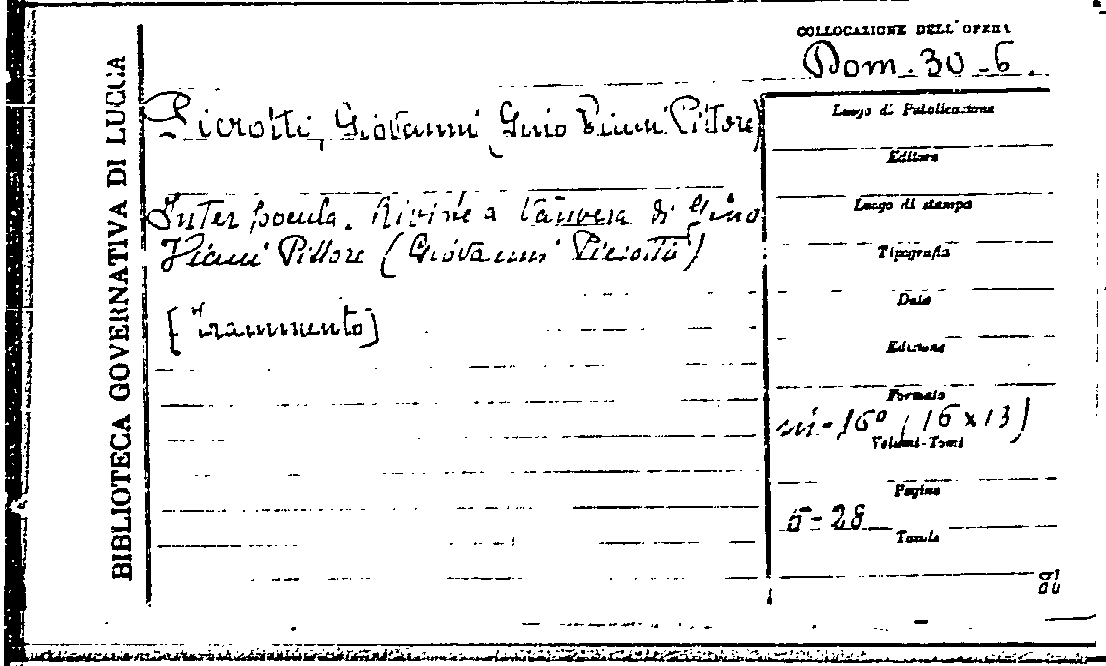 BIBLIOTECA GOVERNATIVA DI LUCCA
COLLOCAZIONE DELL'OPERA
Dom. 30-6.
Pierotti, Giovanni (Gino Vieni Pittore)
Inter pocula. Rivine a di Gino
Pittore (Giovanni Pierotti)
[Frammento]
Luogo di Pubblicazione
Editore
Luogo di stampa
Tipografia
Data
Edizione
Formato
in-16° (16x13)
Volumi-Tomi
Pagine
5-28
Tavole